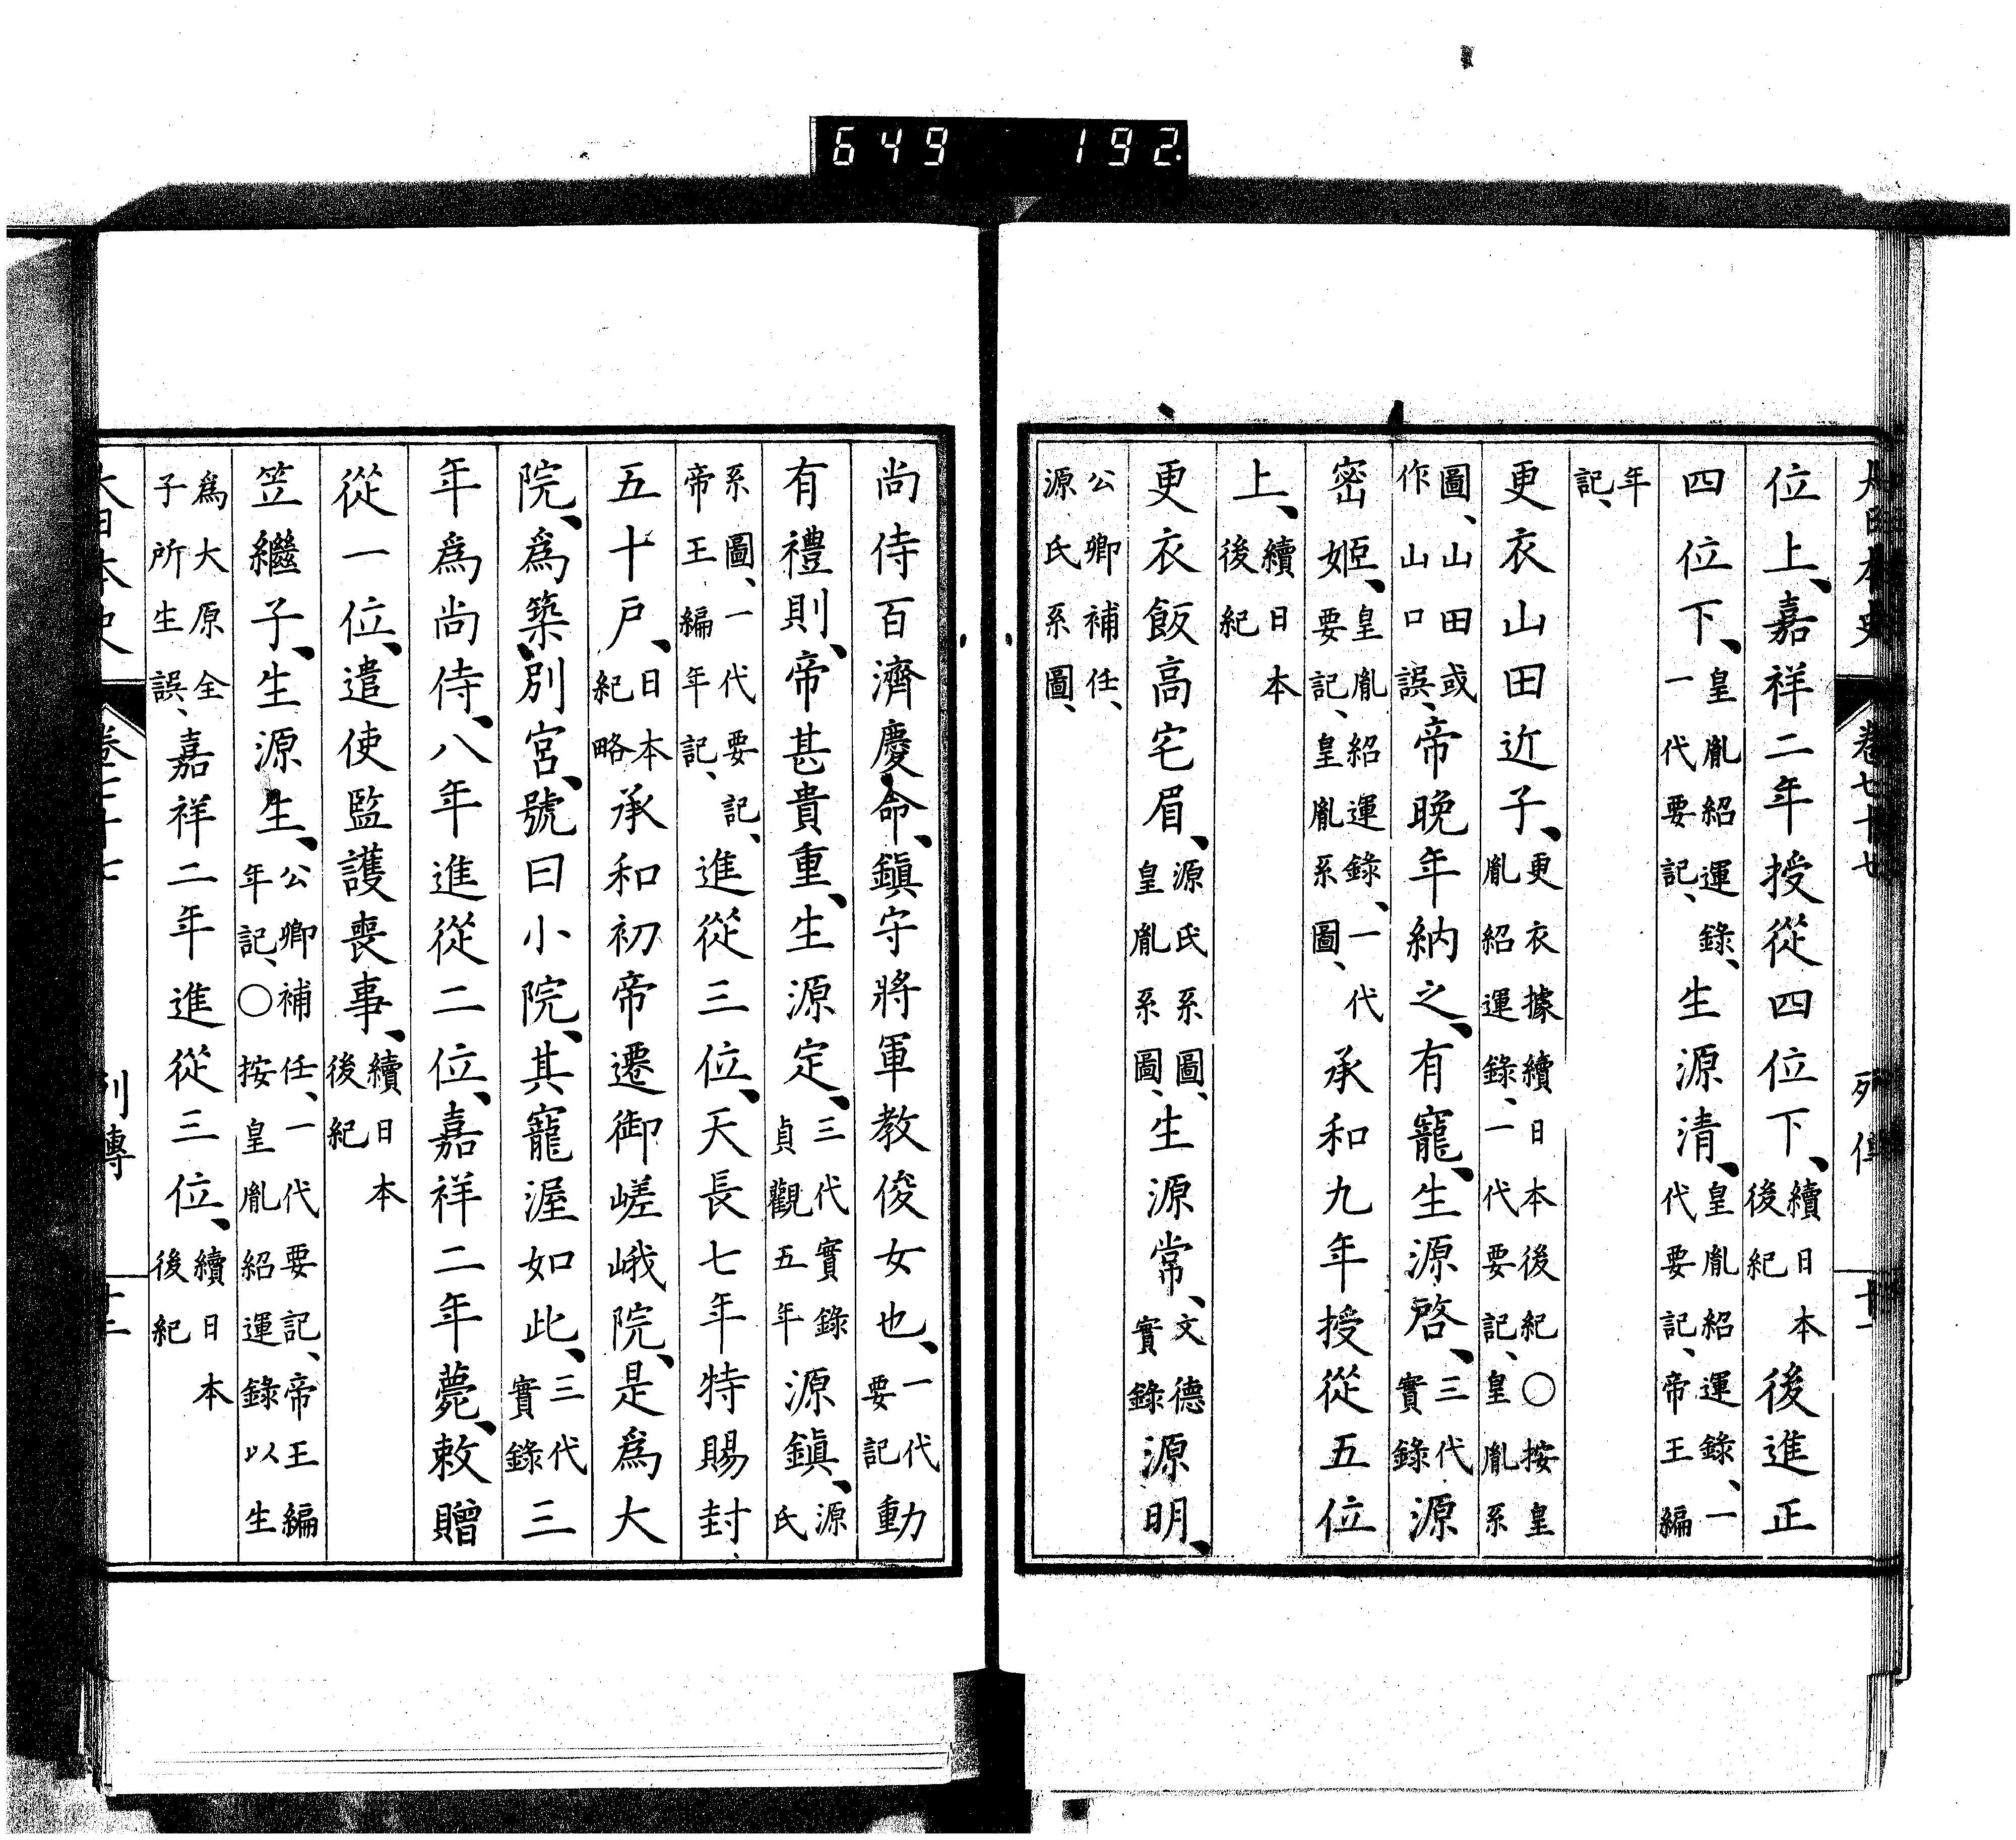 649 192.
大日本史 卷七十七 列傳 十一
位上、嘉祥二年授從四位下、續日本後紀後進正
四位下、皇胤紹運錄、一代要記、生源清、皇胤紹運錄、一代要記、帝王編
年記、
更衣山田近子、更衣據續日本後紀○按皇胤紹運錄、一代要記、皇胤系
圖、山田或作山口誤、帝晚年納之、有寵、生源啓、三代實錄源
密姬、皇胤紹運錄、一代要記、皇胤系圖、承和九年授從五位
上、續日本後紀
更衣飯高宅眉、源氏系圖、皇胤系圖、生源常、文德實錄源明、
公卿補任、源氏系圖、
尚侍百濟慶命、鎭守將軍教俊女也、一代要記動
有禮則、帝甚貴重、生源定、三代實錄貞觀五年源鎭、源氏
系圖、一代要記、帝王編年記、進從三位、天長七年特賜封、
五十戶、日本紀略承和初帝遷御嵯峨院、是爲大
院、爲築別宮、號曰小院、其寵渥如此、三代實錄三
年爲尚侍、八年進從二位、嘉祥二年薨、敕贈
從一位、遣使監護喪事、續日本後紀
笠繼子、生源生、公卿補任、一代要記、帝王編年記、○按皇胤紹運錄以生
爲大原全子所生誤、嘉祥二年進從三位、續日本後紀
大日本史 卷七十七 列傳 十二